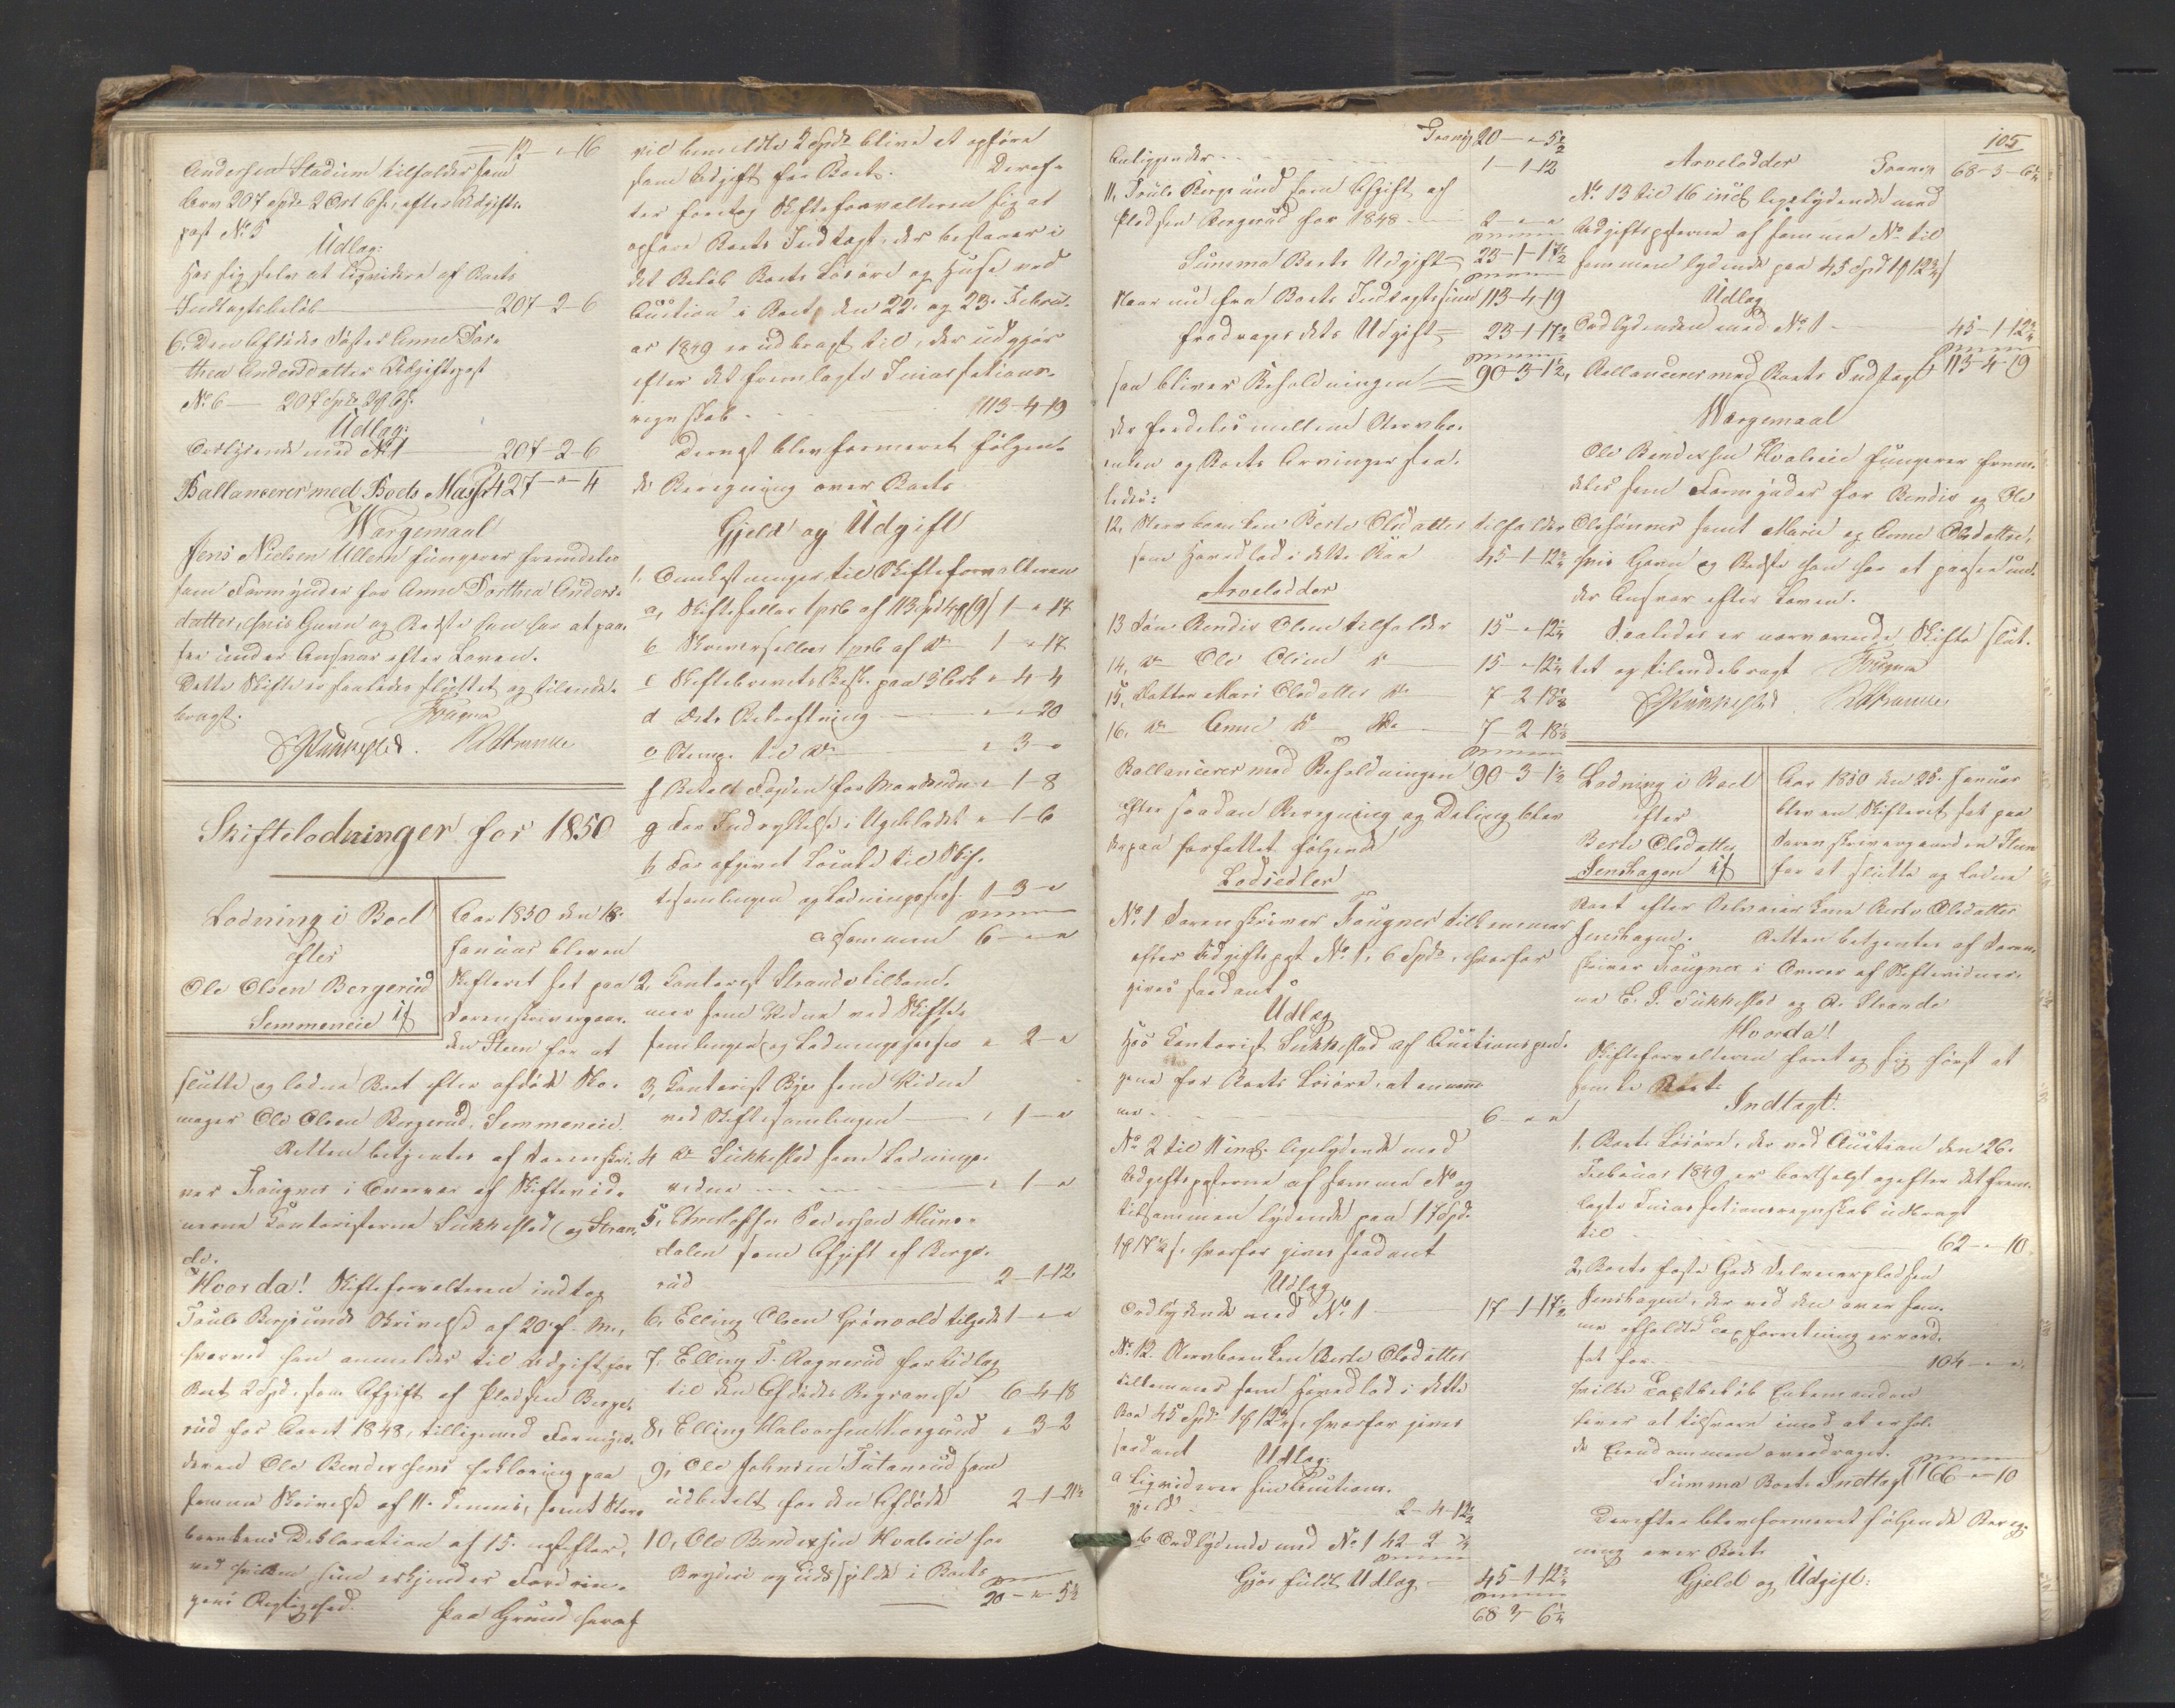 12 - " - 16
Andersen Stadum tilfalder som
Arv 207 spd 2 Ort 6 s, efter Udgifts-
post No 5
Udlag:
Hos sig selv at liqvidere af Boets
Indtægtsbeløb 207-2-6
6. Den Afdødes Søster Anne Dor-
thea Andersdatter Udgiftspost
No 6 — 207 Spd 2 ort 6 s.
Udlag:
Ordlydende med No 1 207-2-6
Ballancerer med Boets Massa 427 - " - 4
Værgemaal
Jens Nielsen Ullern fungerer fremdeles
som Formynder for Anne Dorthea Anders-
datter, hvis Gavn og Bedste han har at paa-
see under Ansvar efter Loven.
Dette Skifte er saaledes sluttet og tilende-
bragt.
Faugner
Sukkestad. Strande
Skiftelodninger for 1850
Lodning i Boet
efter
Ole Olsen Bergerud
Semmeneie
Aar 1850 den 18.
Januar blev en
Skifteret sat paa
Sorenskrivergaar-
den Steen for at
slutte og lodne Boet efter afdøde Sko-
mager Ole Olsen Bergerud, Semmeneie.
Retten betjentes af Sorenskri-
ver Faugner i Overvær af Skiftevid-
nerne Kontoristerne Sukkestad og Stran-
de.
Hvorda! Skifteforvalteren indtog
Skrivelse af 20.
hvorved han anmelder til Udgift for
Boet 2 Spd. som Afgift af Pladsen Berge-
rud for Aaret 1848, tilligemed Formyn-
deren Ole Bendixsens Erklæring paa
samme Skrivelse af 11. dennes, samt Sterv-
boenkens Declaration af 15.
ved hvilken hun erkjender Fordrin-
gens Rigtighed. Paa Grund heraf
vil bemeldte 2 Spd. blive at opføre
som Udgift for Boet. Deref-
ter foretog Skifteforvalteren sig at
opføre Boets Indtægt, der bestaaer i
det Beløb Boets Løsøre og Huse ved
Auction i Boet, den 22. og 23. Febru-
ar 1849 er udbragt til, der udgjør
efter det fremlagte Incassations-
regnskab 113-4-19
Dernæst blev formeret følgen-
de Beregning over Boets
Gjeld og Udgift
1. Omkostninger til Skifteforvalteren
a, Skiftesallær 1 prct af 113 Spd 4 ort 19 s 1 - " - 17
b Skriversallær 1 prct af do 1 - " - 17
c Skiftebrevets Besk. paa 3 Ark " - 4 - 4
d Dets Bekræftning " - " - 20
e Stemp. til do " - 3 - "
f Betalt Fogden for " - 1 - 8
g For Indrykkelse i Ugebladet " - 1 - 6
h For afgivet Locale til Skif-
tesamlingen og Lodningssess. 1 - 3 - "
a Sammen 6 - " - "
2. Kontorist Strande tilkom-
mer som Vidne ved Skifte-
samlingen og Lodningssessio " - 2 - "
3, Kontorist Bye som Vidne
ved Skiftesamlingen " - 1 - "
4 do Sukkestad som Lodnings-
vidne " - 1 - "
5, Christopher Pedersen
dalen som Afgift af Berge-
rud 2 - 1 - 12
6, Elling Olsen Grønvold tilgode 1 - " - "
7, Elling T. Ragnerud for Udlæg
til den Afdødes Begravelse 6 - 4 - 18
8, Elling Halvorsen " - 3 - 2
9, Ole Johnsen som
udbetalt for den Afdøde 2 - 1 - 21½
10, Ole Bendixsen Hvaleeie for
i Boets
20 - " - 5½
Transp. 20 - " - 5½
Anliggender 1 - 1 - 12
11, som Afgift af
Pladsen Bergerud for 1848 2 - " - "
Summa Boets Udgift 23 - 1 - 17½
Naar nu fra Boets Indtægtssum 113-4-19
fradrages dets Udgift 23-1-17½
saa bliver Beholdningen 90-3-1½
der fordeles mellem Stervbo-
enken og Boets Arvinger saa-
ledes:
12, Stervboenken Berte Olsdatter tilfalder
som Hovedlod i dette Boe 45-1-12¾
Arvelodder
13 Søn Bendix Olsen tilfalder 15 - " - 12¼
14, do Ole Olsen do 15 - " - 12¼
15, Datter Mari Olsdatter do 7-2-18⅛
16, do Anne do do 7-2-18⅛
Ballancerer med Beholdningen 90-3-1½
Efter saadan Beregning og Deling blev
derpaa forfattet følgende
Lodsedler
No 1 Sorenskriver Faugner tilkommer
efter Udgiftspost No 1, 6 Spd, hvorfor
gives saadant
Udlæg
Hos Kontorist Sukkestad af Auctionspen-
gene for Boets Løsøre, at annam-
me 6 - " - "
No 2 til 11 incl. ligelydende med
Udgiftsposterne af samme No og
tilsammen lydende paa 17 Spd
1 ort 17½ s. hvorfor gives saadant
Udlæg
Ordlydende med No 1 17-1-17½
No 12. Stervboenken Berte Olsdatter
tilkommer som Hovedlod i dette
Boe 45 Spd 1 ort 12¾ s, hvorfor gives
saadant Udlæg:
a liqviderer sin Auctions-
gjeld 2-4-12½
b Ordlydende med No 1 42-2-¼
Gjør fuldt Udlæg 45-1-12¾
68-3-6¼
105
Arvelodder Transp. 68-3-6¼
No 13 til 16 incl ligelydende med
Udgiftsposterne af samme No til
sammen lydende paa 45 Spd 1 ort 12¾ s
Udlæg
Ordlydende med No 1 45-1-12¾
Ballancerer med Boets Indtægt 113-4-19
Værgemaal
Ole Bendixsen Hvaleeie fungerer frem-
deles som Formynder for Bendix og Ole
Olsønner samt Marie og Anne Olsdøttre,
hvis Gavn og Bedste han har at paasee un-
der Ansvar efter Loven.
Saaledes er nærværende Skifte slut-
tet og tilendebragt Faugner
Sukkestad Strande
Lodning i Boet
efter
Berte Olsdatter
Jenshagen
Aar 1850 den 25. Januar
blev en Skifteret sat paa
Sorenskrivergaarden Steen
for at slutte og lodne
Boet efter Berte Olsdatter
Jenshagen. Retten betjentes af Soren-
skriver Faugner i Overvær af Skiftevidner-
ne E. S. Sukkestad og A. Strande
Hvorda!
Skifteforvalteren foretog sig først at
samle Boets
Indtægt:
1. Boets Løsøre, der ved Auction den 26.
Februar 1849 er bortsolgt og efter det frem-
lagte Incassationsregnskab udbragt
til 62 - " - 10
2, Boets faste Gods Selveierpladsen
Jenshagen, der ved den over sam-
me afholdte Taxforretning er værd-
sat for 104 - " - "
hvilke Taxtbeløb Enkemanden
bliver at tilsvare imod at erhol-
de Eiendommen overdraget.
Summa Boets Indtægt 166 - " - 10
Derefter blev formeret følgende Bereg-
ning over Boets
Gjeld og Udgift: